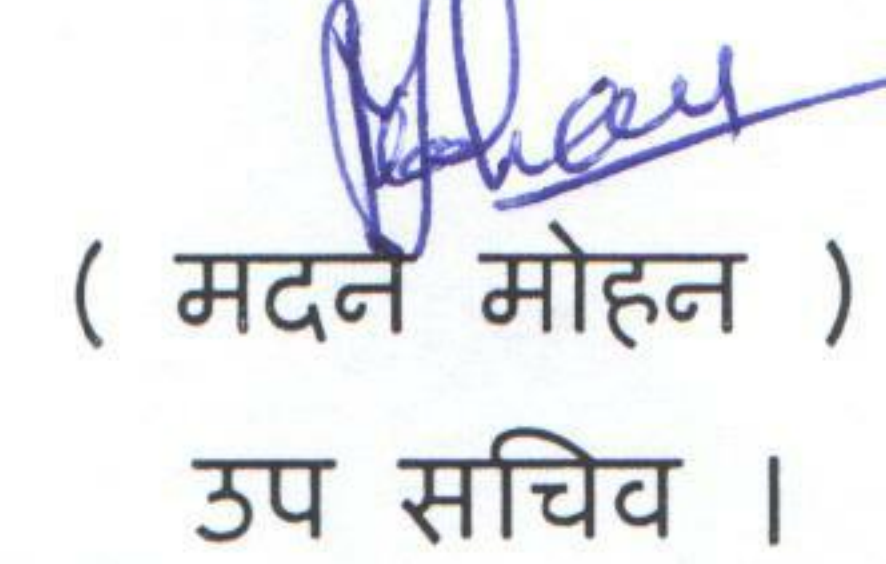 ( मदन मोहन )
उप सचिव ।